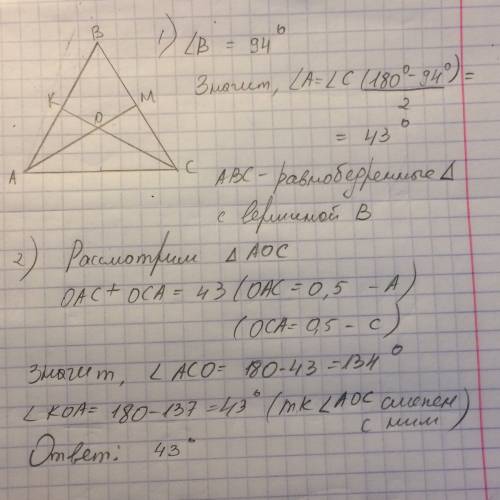 B
K
M
O
A
C
1) ∠B = 94°
Значит, ∠A=∠C (180°-94°)/2 =
= 43°
ABC - равнобедренные Δ
с вершиной B
2) Рассмотрим Δ AOC
OAC + OCA = 43 (OAC = 0,5 - A)
(OCA = 0,5 - C)
Значит, ∠ ACO = 180-43 = 134°
∠KOA = 180-137 = 43° (тк ∠AOC смежен
с ним)
Ответ: 43°